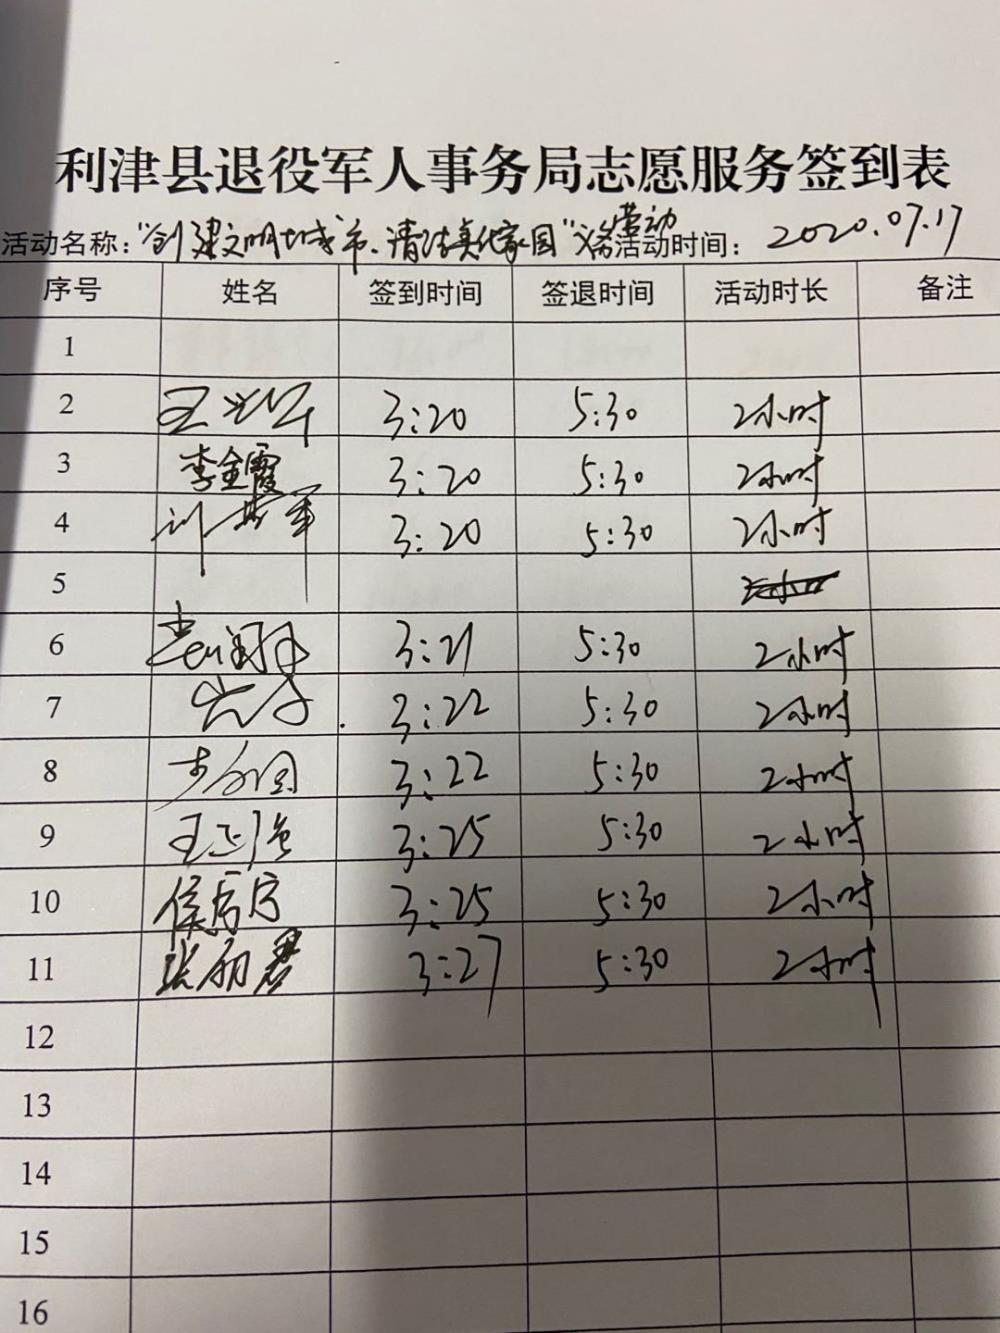 利津县退役军人事务局志愿服务签到表
活动名称：“创建文明城市、清洁美化家园”义务劳动 活动时间： 2020.07.17
序号 姓名 签到时间 签退时间 活动时长 备注
1
2 3:20 5:30 2小时
3 李金霞 3:20 5:30 2小时
4 3:20 5:30 2小时
5
6 3:21 5:30 2小时
7 3:22 5:30 2小时
8 3:22 5:30 2小时
9 3:25 5:30 2小时
10 3:25 5:30 2小时
11 张丽君 3:27 5:30 2小时
12
13
14
15
16